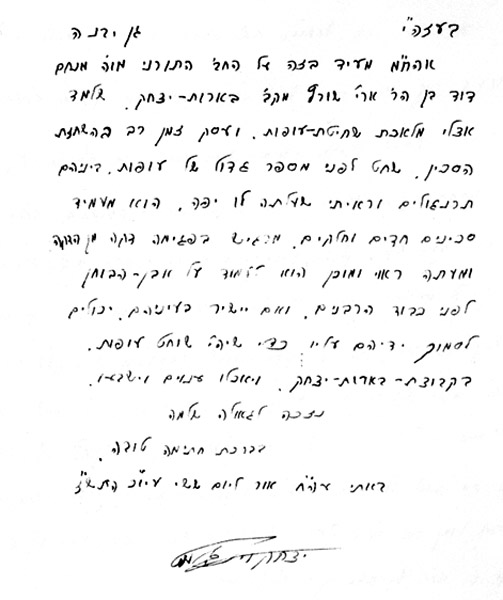 בעזה"י גן יבנה
אהח"מ מעיד בזה על החב' התורני מוה' מנחם
דוד בן הר' ארי' שורץ מקב' בארות-יצחק. שלמד
אצלי מלאכת שחיטת-עופות. ועסק זמן רב בהשחזת
הסכין. שחט לפני מספר גדול של עופות. ביניהם
תרנגולים וראיתי שעלתה לו יפה. הוא מעמיד
סכינים חדים וחלקים. מרגיש בפגימה דקה מן הדקה
ומעתה ראוי ומוכן הוא לעמוד על אבן-הבוחן
לפני כבוד הרבנים. ואם יישיר בעיניהם. יכולים
לסמוך ידיהם עליו כדי שיהי' שוחט עופות.
בקבוצת-בארות-יצחק. ויאכלו ענוים וישבעו.
נזכה לגאולה שלמה
בברכת חתימה טובה.
באתי עה"ח אור ליום ששי עיו"כ התש"ז
יצחק